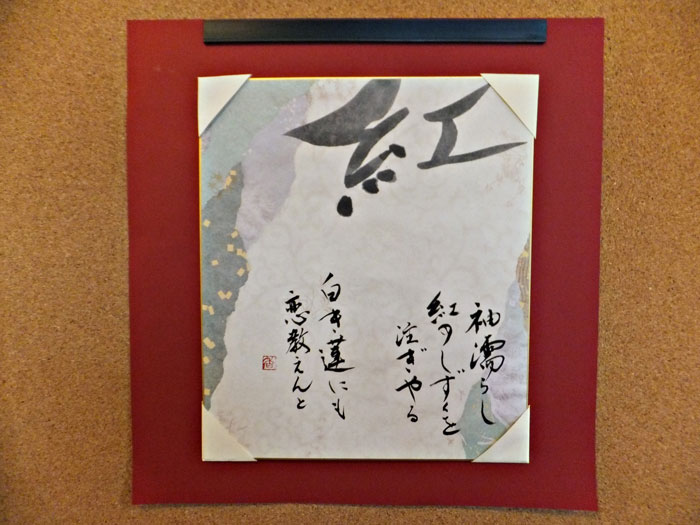 紅
袖濡らし
紅のしずくを
注ぎやる
白き蓮にも
恋教えんと